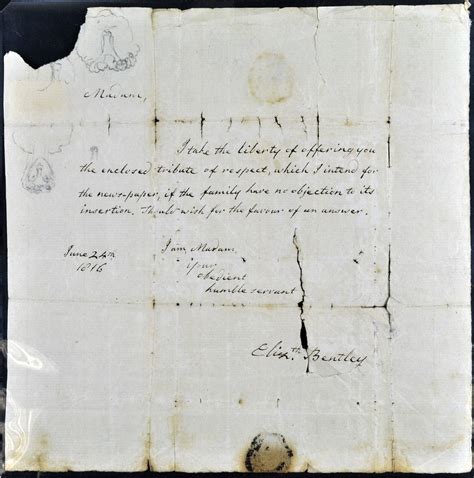 Madam,
I take the liberty of offering you
the enclosed tribute of respect, which I intend for
the news-paper, if the family have no objection to its
insertion. Should wish for the favour of an answer.
June 24th
1816
I am, Madam,
Your
obedient
humble servant
Elizth. Bentley